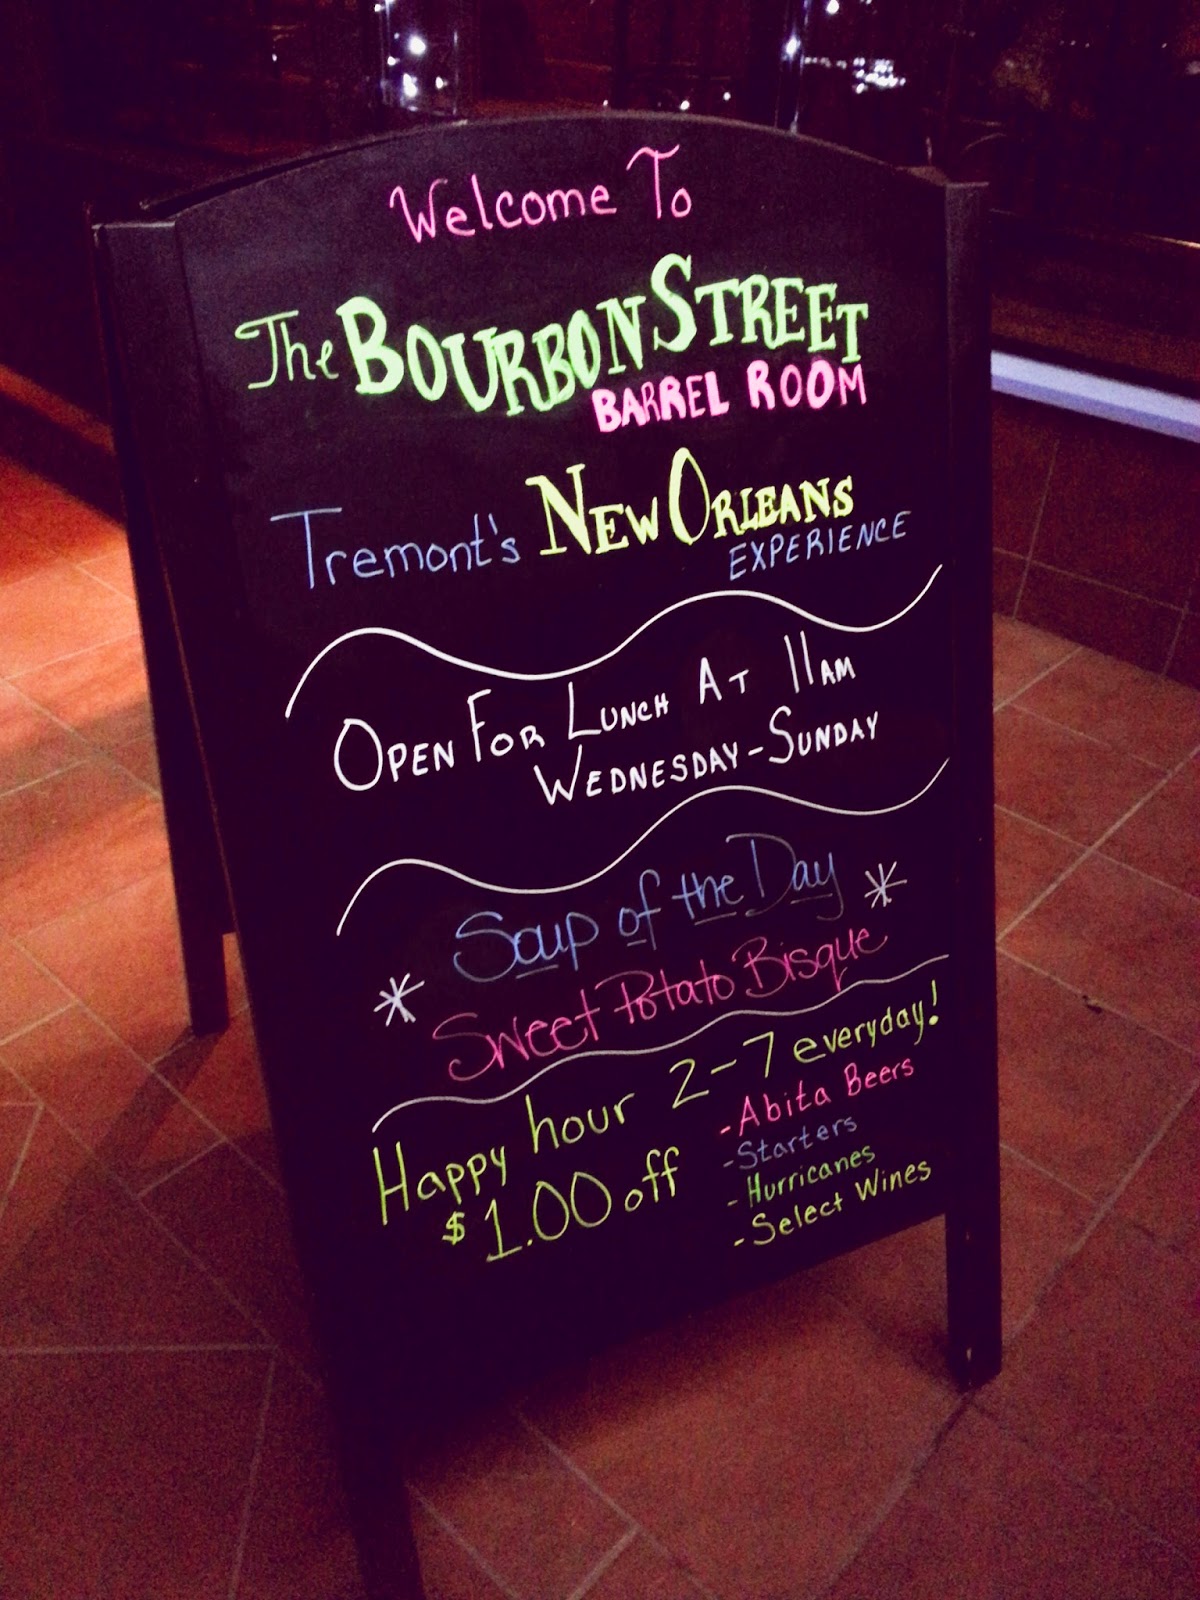 Welcome To
The BOURBON STREET
BARREL ROOM
Tremont's NEW ORLEANS
EXPERIENCE
OPEN FOR LUNCH AT 11AM
WEDNESDAY-SUNDAY
Soup of the Day
* Sweet Potato Bisque *
Happy hour 2-7 everyday!
$1.00 off
-Abita Beers
-Starters
-Hurricanes
-Select Wines